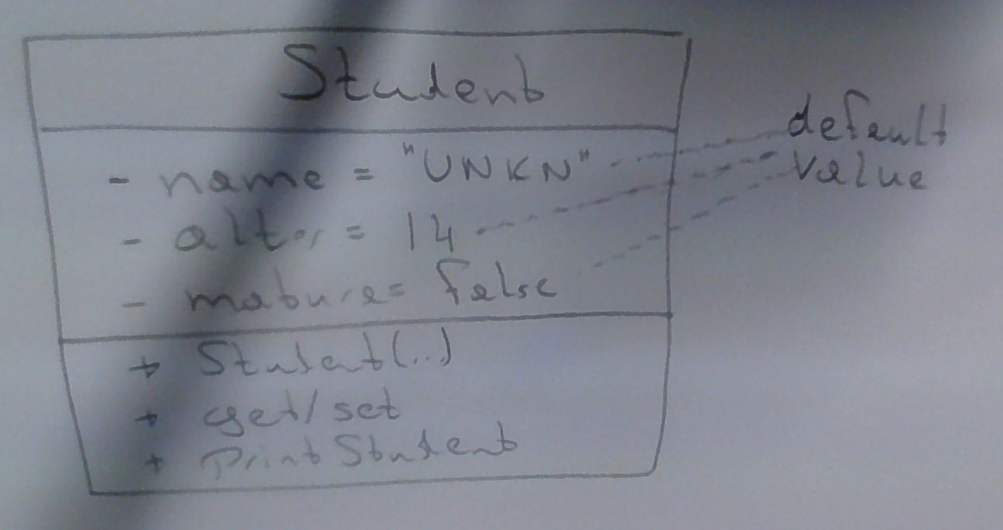 Student
- name = "UNKN"
default
value
- alter = 14
- mature = false
+ Student(..)
+ get/set
+ PrintStudent